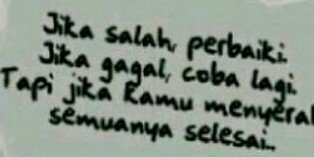 Jika salah, perbaiki.
Jika gagal, coba lagi.
Tapi jika kamu menyerah
semuanya selesai..